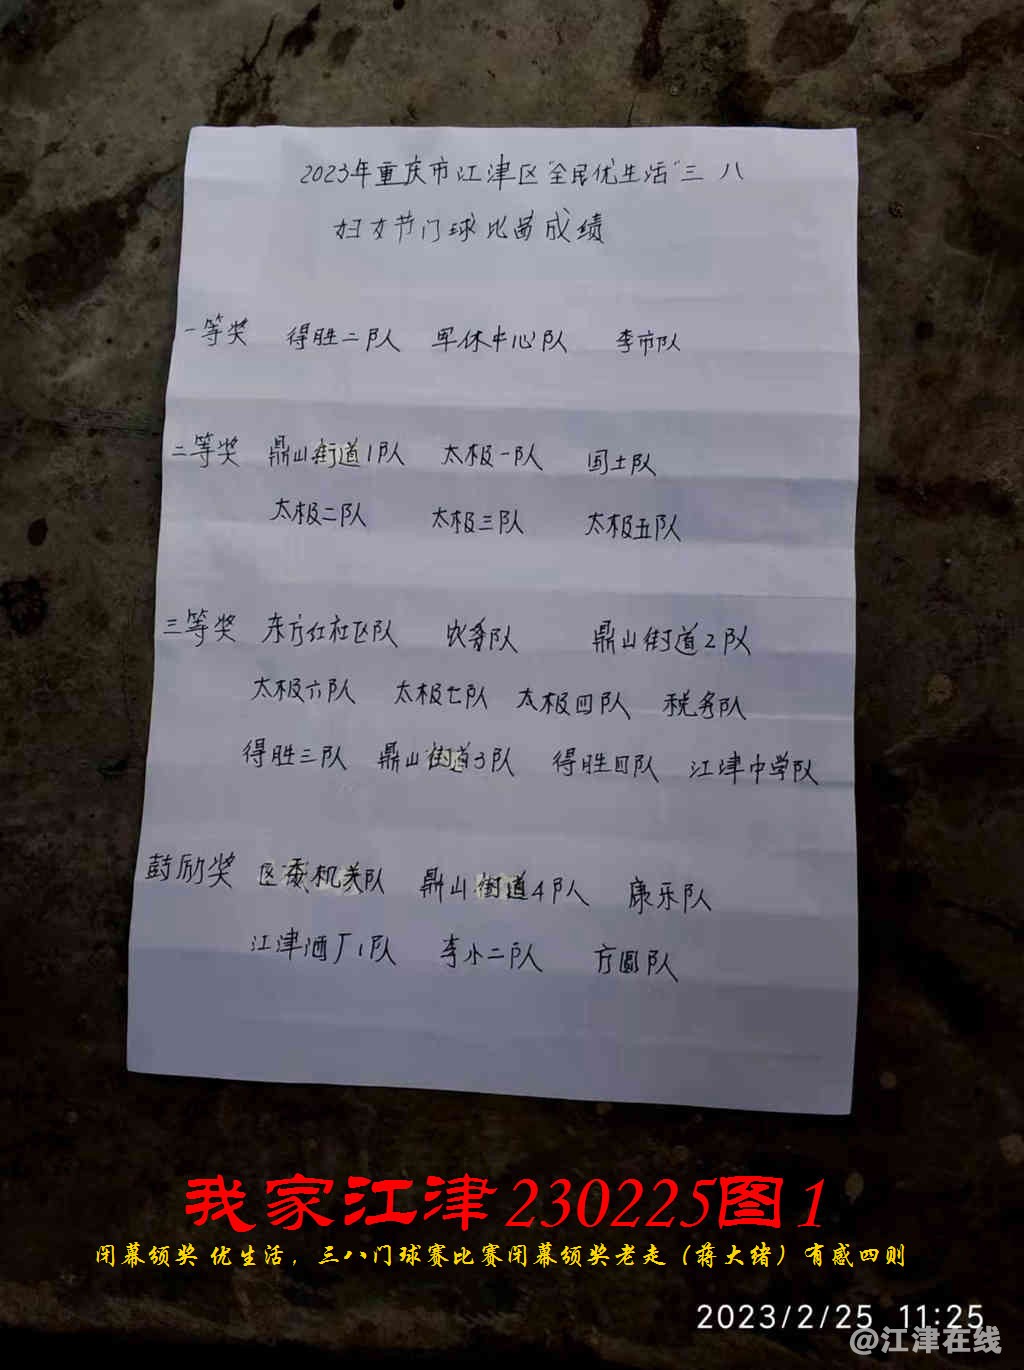 2023年重庆市江津区“全民优生活”三 八
妇女节门球比茜成绩
一等奖 得胜二队 军休中心队 李市队
二等奖 鼎山街道1队 太极一队 国土队
太极二队 太极三队 太极五队
三等奖 东方红社区队 农务队 鼎山街道2队
太极六队 太极七队 太极四队 税务队
得胜三队 鼎山街道3队 得胜四队 江津中学队
鼓励奖 区委机关队 鼎山街道4队 康乐队
江津酒厂1队 李小二队 方圆队
我家江津230225图1
闭幕颁奖 优生活，三八门球赛比赛闭幕颁奖老走（蒋大绪）有感四则
2023/2/25 11:25
@江津在线